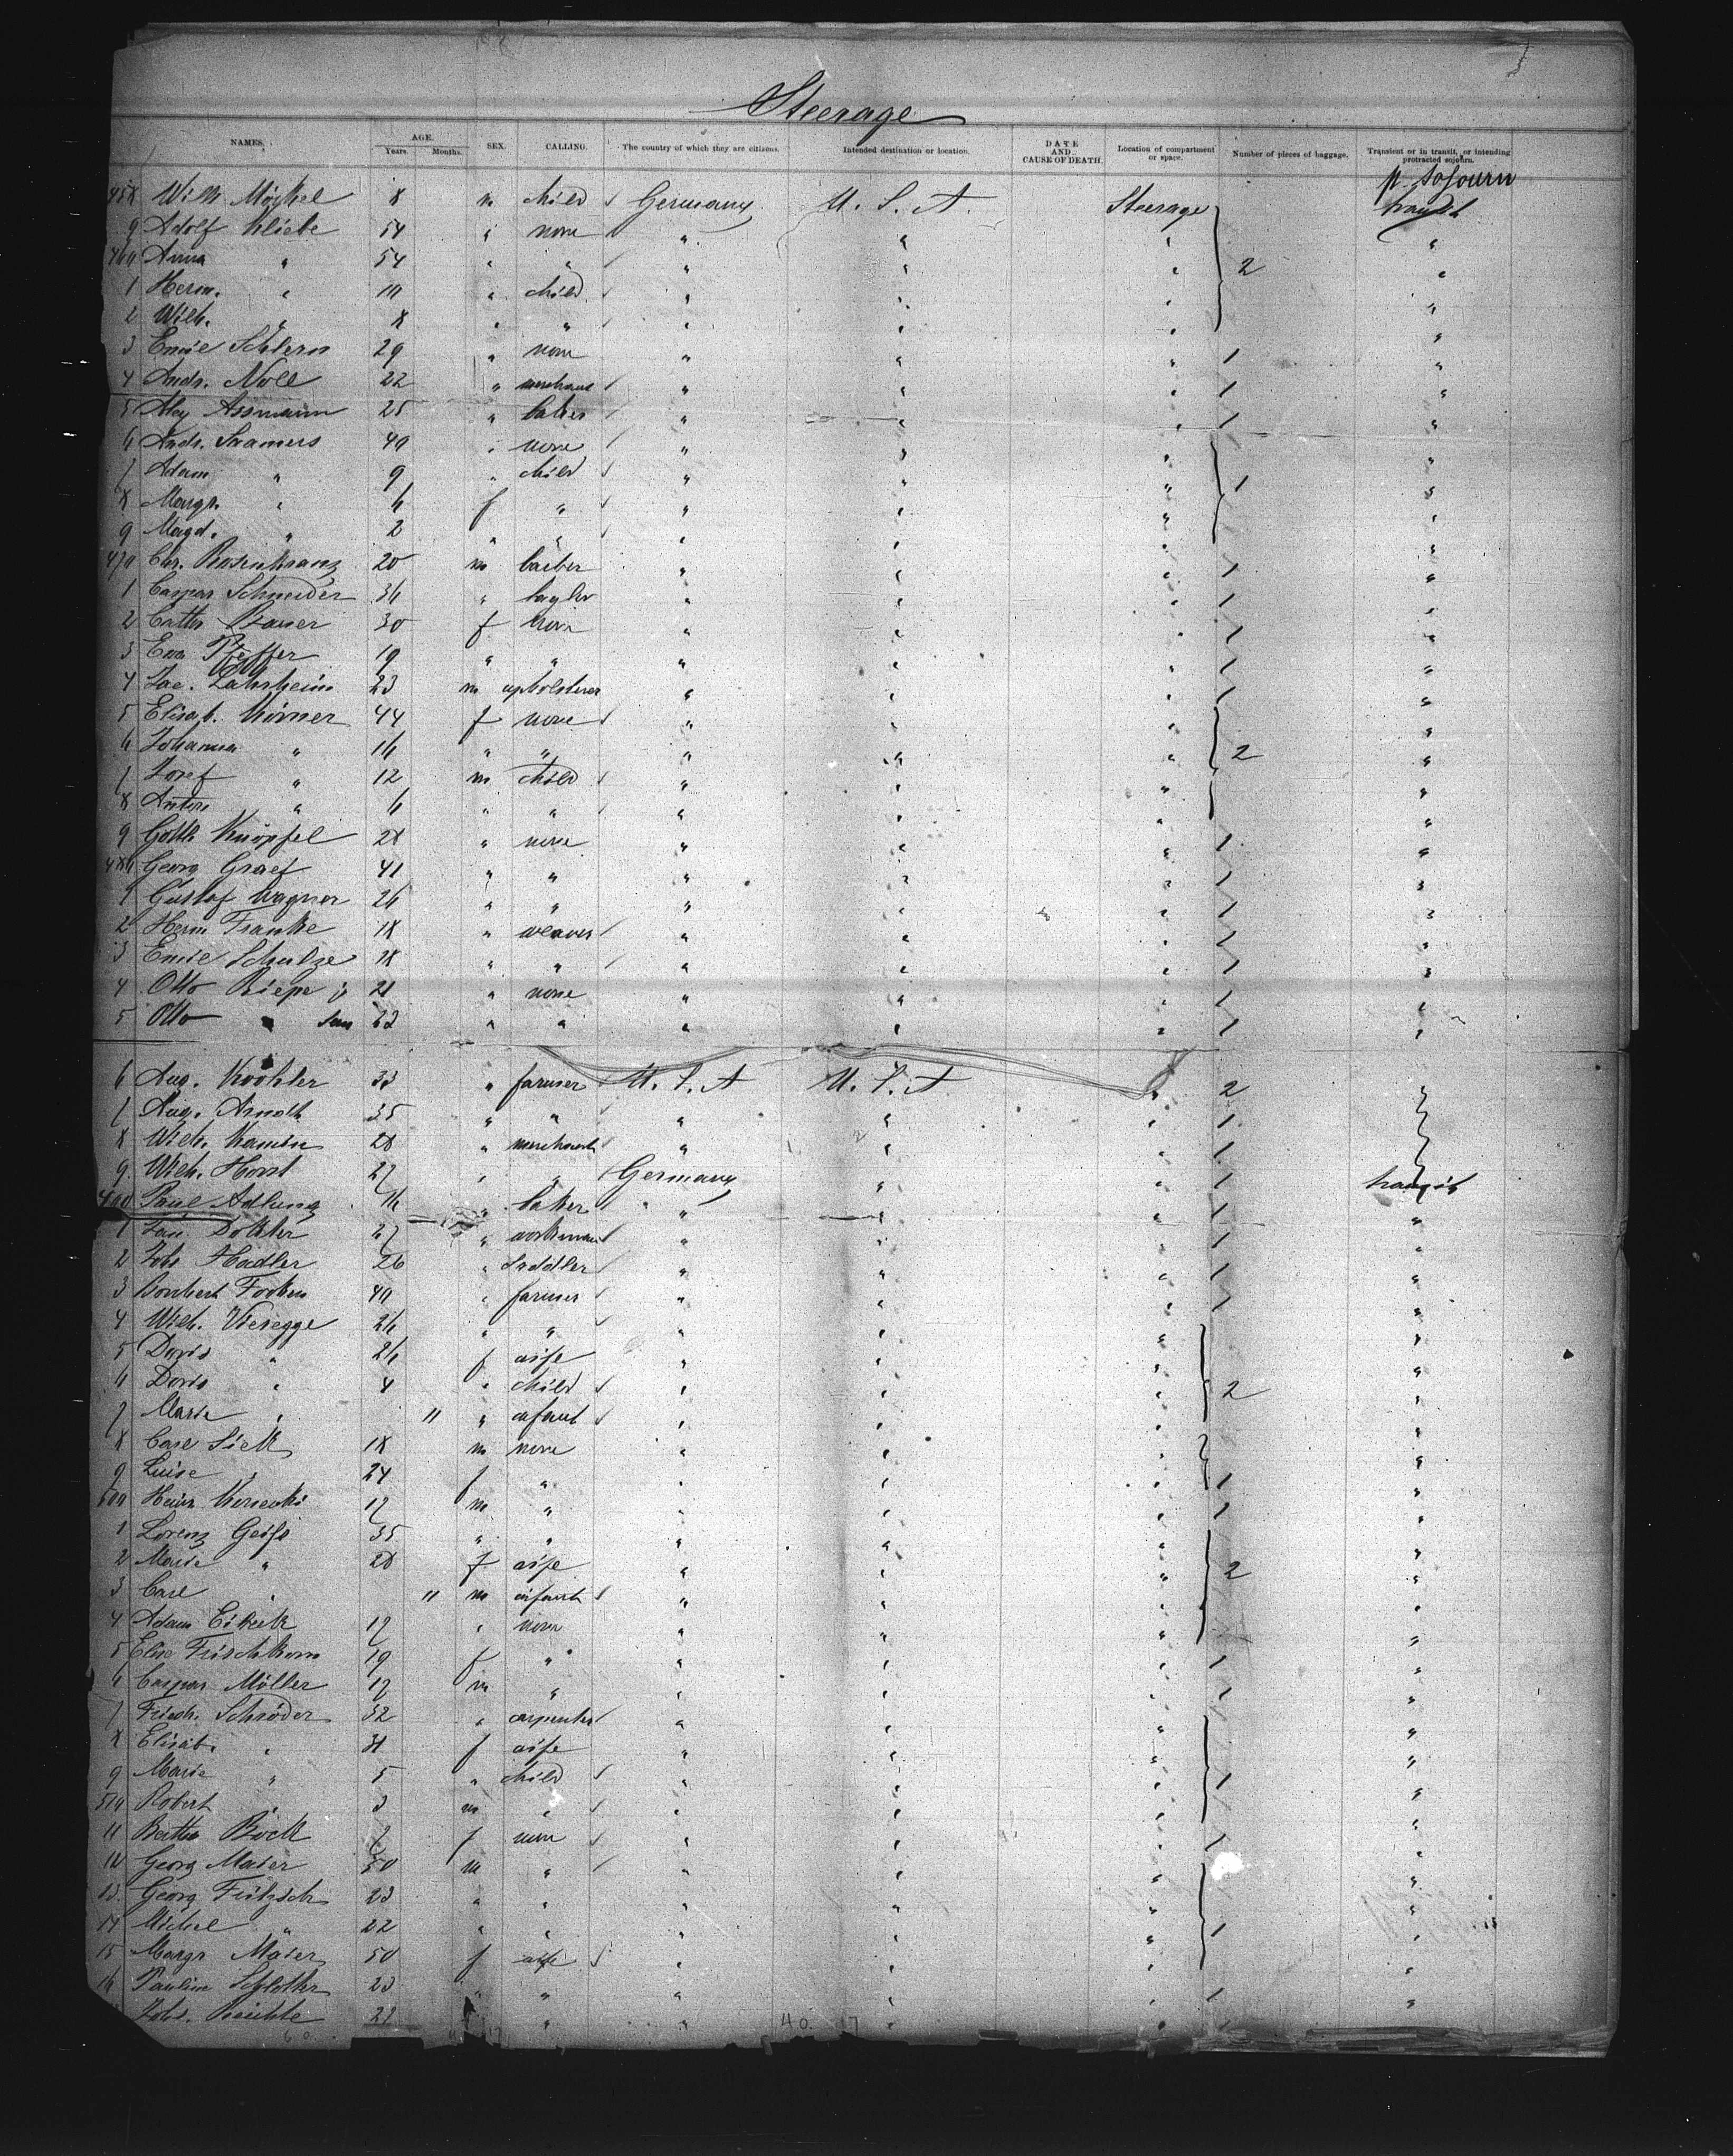 Steerage
NAMES. AGE. Years. Months. SEX. CALLING. The country of which they are citizens. Intended destination or location. DATE AND CAUSE OF DEATH. Location of compartment or space. Number of pieces of baggage. Transient or in transit, or intending protracted sojourn.
p. sojourn
458 Wilh. Möckel 8 m child Germany U. S. A. Steerage transit
9 Adolf Kliebe 54 " none " " " "
460 Anna " 54 " " " " " 2 "
1 Herm. " 10 " child " " " "
2 Wilh. " 8 " " " " " "
3 Emil 29 " none " " " 1 "
4 Andr. Noll 22 " merchant " " " 1 "
5 Assmann 25 " baker " " " 1 "
6 Andr. Saamers 40 " none " " " "
7 Adam " 9 " child " " " 1 "
8 Margr. " 6 f " " " " "
9 Magd. " 2 " " " " " "
470 Chr. Rosenkranz 20 m barber " " " 1 "
1 Caspar Schneider 36 " " " " 1 "
2 Cath. 30 f none " " " 1 "
3 Eva Pfeffer 19 " " " " " 1 "
4 Jac. 23 m upholsterer " " " 1 "
5 Elisab. Körner 44 f none " " " "
6 Johanna " 16 " " " " " 2 "
7 Josef " 12 m child " " " "
8 Anton " 6 " " " " " "
9 Gottl. Knöpfel 28 " none " " " 1 "
480 Georg Graef 41 " " " " " 1 "
1 Gustaf Wagner 26 " " " " " 1 "
2 Herm Franke 18 " weaver " " " 1 "
3 Emil Schulze 18 " " " " " 1 "
4 Otto Riepe jr 21 " none " " " 1 "
5 Otto " sen 62 " " " " " 1 "
6 Aug. Koohler 33 " farmer U. S. A U. S. A " 2
7 Aug. Arnoth 35 " " " " " 1
8 Wilh. Kamin 28 " merchant " " " 1
9 Wilh. Horst 27 " " Germany " " 1 transit
490 Paul Adlung 16 " baker " " " 1 "
1 Dokter 27 " workman " " " 1 "
2 Joh. Hadler 26 " Saddler " " " 1 "
3 Fooken 40 " farmer " " " 1 "
4 Wilh. Vieregge 26 " " " " " "
5 Doris " 26 f wife " " " "
6 Doris " 4 " child " " " 2 "
7 Marie " 11 " infant " " " "
8 Carl Sick 18 m none " " " "
9 Luise " 24 f " " " " 1 "
500 Heinr. 17 m " " " " 1 "
1 Lorenz Geiss 35 " " " " " "
2 Marie " 28 f wife " " " 2 "
3 Carl " 11 m infant " " " "
4 Adam 17 " none " " " "
5 Elise Frischkorn 19 f " " " " 1 "
6 Caspar Möller 17 m " " " " 1 "
7 Friedr. Schröder 32 " carpenter " " " "
8 Elisab. " 31 f wife " " " "
9 Marie " 5 " child " " " 1 "
510 Robert " 3 m " " " " "
11 Bertha Böck f none " " " 1 "
12 Georg Maier 50 m " " " " "
13 Georg Fritzsch 23 " " " " " "
14 Michel " 22 " " " " " 1 "
15 Margr Maier 50 f wife " " " "
16 Pauline 23 " " " " " 1 "
Johs. 21 " " " "